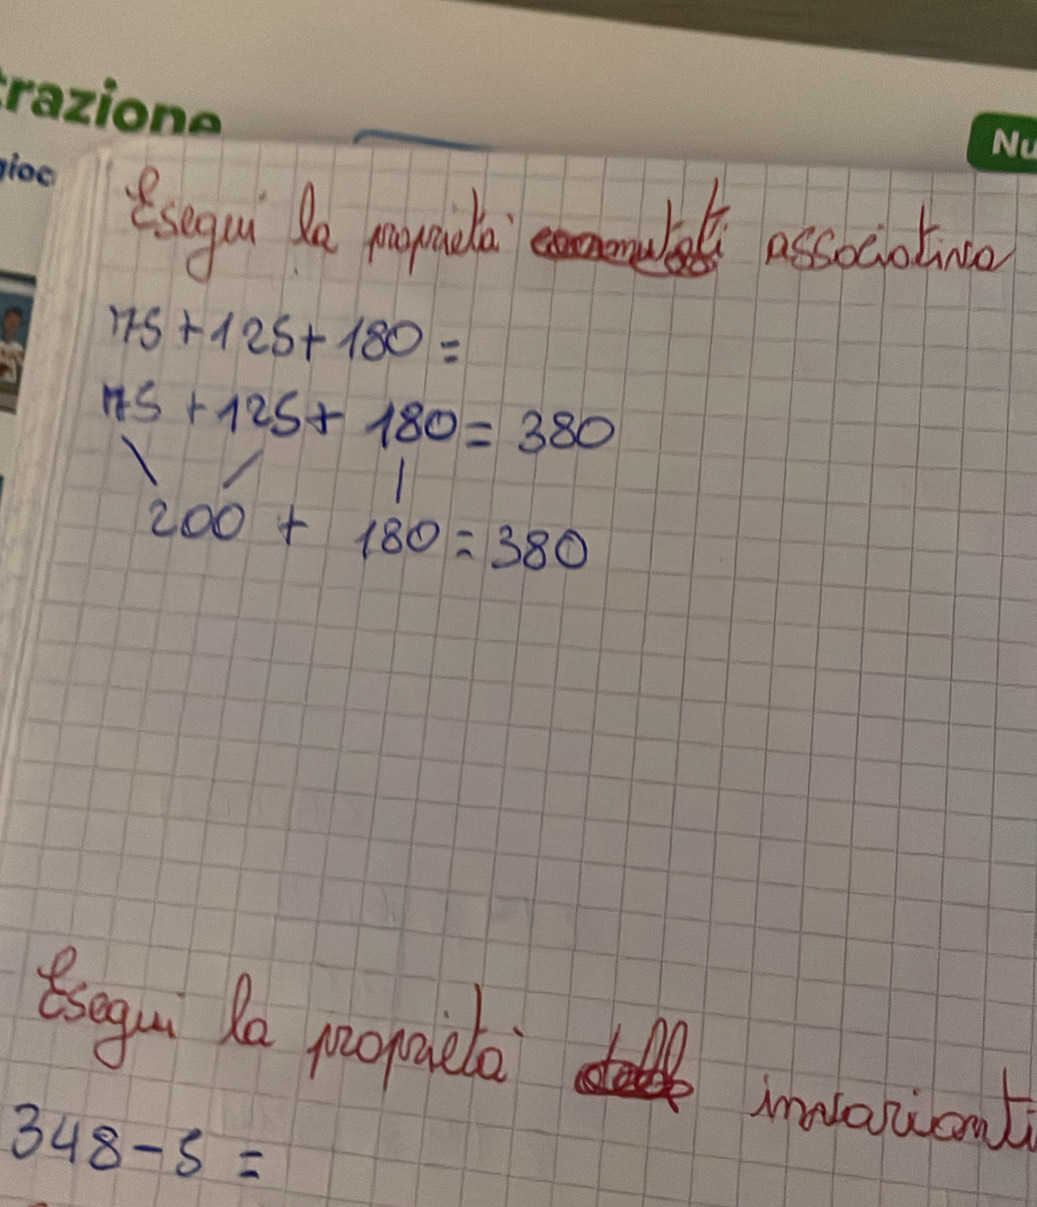 razione
Nu
gioc
Esegui la proprietà associativa
75+125+180=
75+125+180=380
200+180=380
Esegui la proprietà invarianti
348-5=